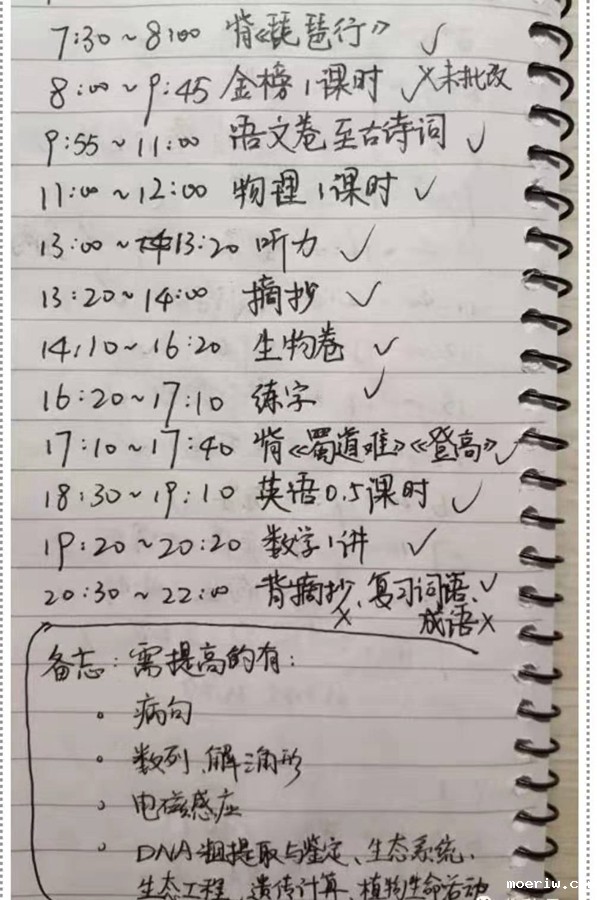 7:30~8:00 背《琵琶行》 ✓
8:00~9:45 金榜1课时 ✓×未批改
9:55~11:00 语文卷至古诗词 ✓
11:00~12:00 物理1课时 ✓
13:00~13:20 听力 ✓
13:20~14:00 摘抄 ✓
14:10~16:20 生物卷 ✓
16:20~17:10 练字 ✓
17:10~17:40 背《蜀道难》《登高》✓
18:30~19:10 英语0.5课时 ✓
19:20~20:20 数学1讲 ✓
20:30~22:00 背摘抄、复习词语、✓
× 成语×
备忘:需提高的有:
。病句
。数列、解三角形
。电磁感应
。DNA粗提取与鉴定、生态系统、
生态工程、遗传计算、植物生命活动
moeriw.c